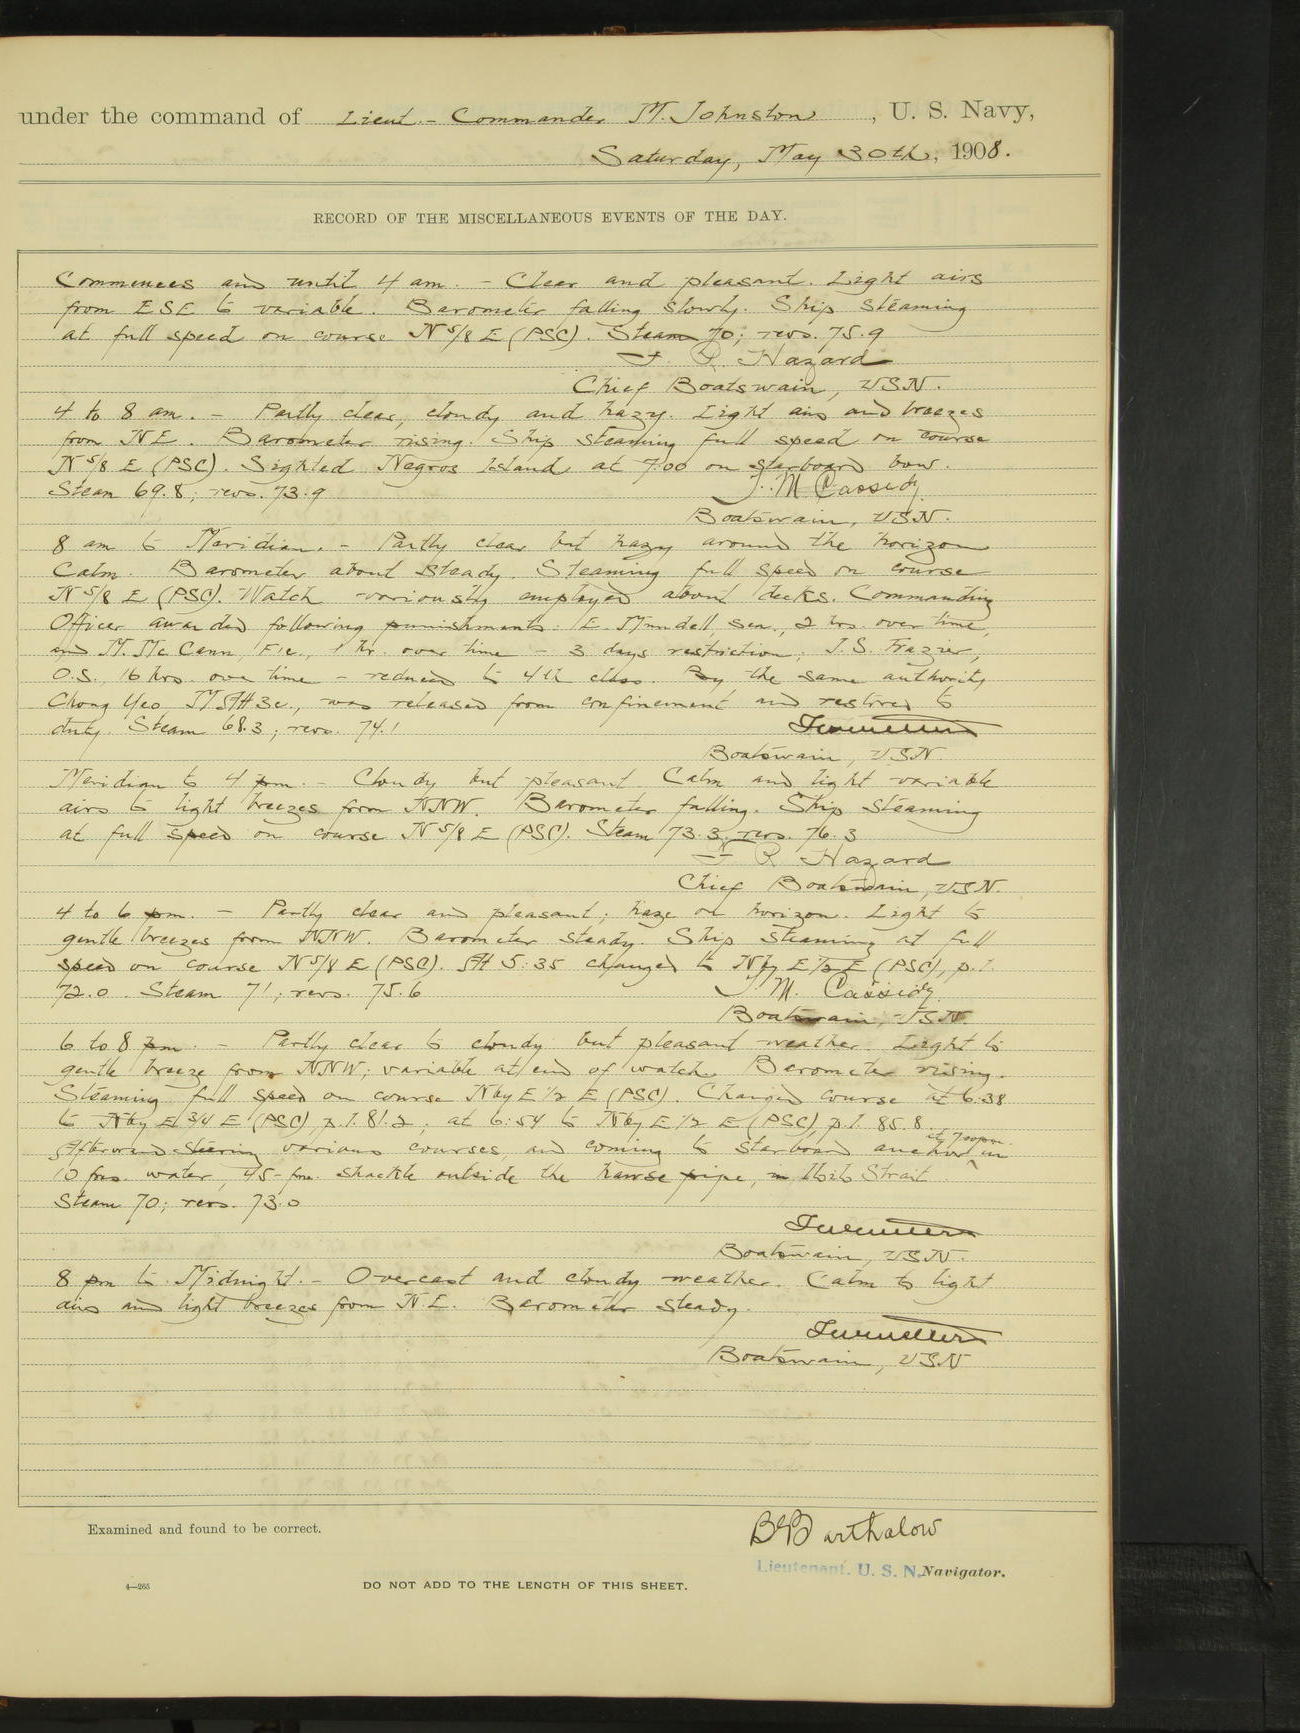 under the command of Lieut.- Commander M. Johnston, U. S. Navy,
Saturday, May 30th, 1908.
RECORD OF THE MISCELLANEOUS EVENTS OF THE DAY.
Commences and until 4 am. - Clear and pleasant. Light airs
from ESE to variable. Barometer falling slowly. Ship steaming
at full speed on course N 5/8 E (PSC). Steam 70; revs. 75.9
F. R. Hazard
Chief Boatswain, USN.
4 to 8 am. - Partly clear, cloudy and hazy. Light airs and breezes
from NE. Barometer rising. Ship steaming full speed on course
N 5/8 E (PSC). Sighted Negros Island at 7:00 on starboard bow.
Steam 69.8; revs. 73.9
J. M. Cassidy
Boatswain, USN.
8 am to Meridian. - Partly clear but hazy around the horizon
Calm. Barometer about steady. Steaming full speed on course
N 5/8 E (PSC). Watch variously employed about decks. Commanding
Officer awarded following punishments: E. Mundell, Sea., 2 hrs. over time,
and M. McCann, F1c., 1 hr. over time - 3 days restriction; J.S. Frazier,
O.S., 16 hrs. over time - reduced to 4th class. By the same authority
Chong Yeo, MAtt3c., was released from confinement and restored to
duty. Steam 68.3; revs. 74.1
Boatswain, USN.
Meridian to 4 pm. - Cloudy but pleasant Calm and light variable
airs to light breezes from NNW. Barometer falling. Ship steaming
at full speed on course N 5/8 E (PSC). Steam 73.3; revs. 76.3
F R Hazard
Chief Boatswain, USN.
4 to 6 pm. - Partly clear and pleasant; haze on horizon Light to
gentle breezes from NNW. Barometer steady. Ship steaming at full
speed on course N 5/8 E (PSC). At 5:35 changed to Nby E 1/2 E (PSC), p.l.
72.0. Steam 71; revs. 75.6
J. M. Cassidy
Boatswain, USN.
6 to 8 pm. - Partly clear to cloudy but pleasant weather. Light to
gentle breeze from NNW; variable at end of watch. Barometer rising.
Steaming full speed on course Nby E 1/2 E (PSC). Changed course at 6:38
to Nby E 3/4 E (PSC) p.l. 81.2; at 6:54 to Nby E 1/2 E (PSC), p.l. 85.8.
Afterward steering various courses, and coming to starboard anchor at 7:50 pm. in
10 fms. water, 45-fm. shackle outside the hawse pipe, in Iloilo Strait
Steam 70; revs. 73.0
Boatswain, USN.
8 pm to Midnight. - Overcast and cloudy weather. Calm to light
airs and light breezes from N.E. Barometer steady.
Boatswain, USN
Examined and found to be correct.
B B Barthalow
Lieutenant. U. S. N. Navigator.
4—265
DO NOT ADD TO THE LENGTH OF THIS SHEET.